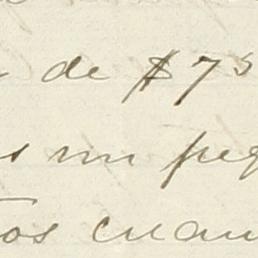 de $75
s un peq
os cuan